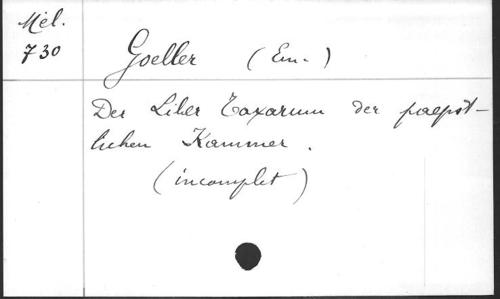 Mél.
730
Goeller (Em.)
Der Liber Taxarum der paepst-
lichen Kammer.
(incomplet)